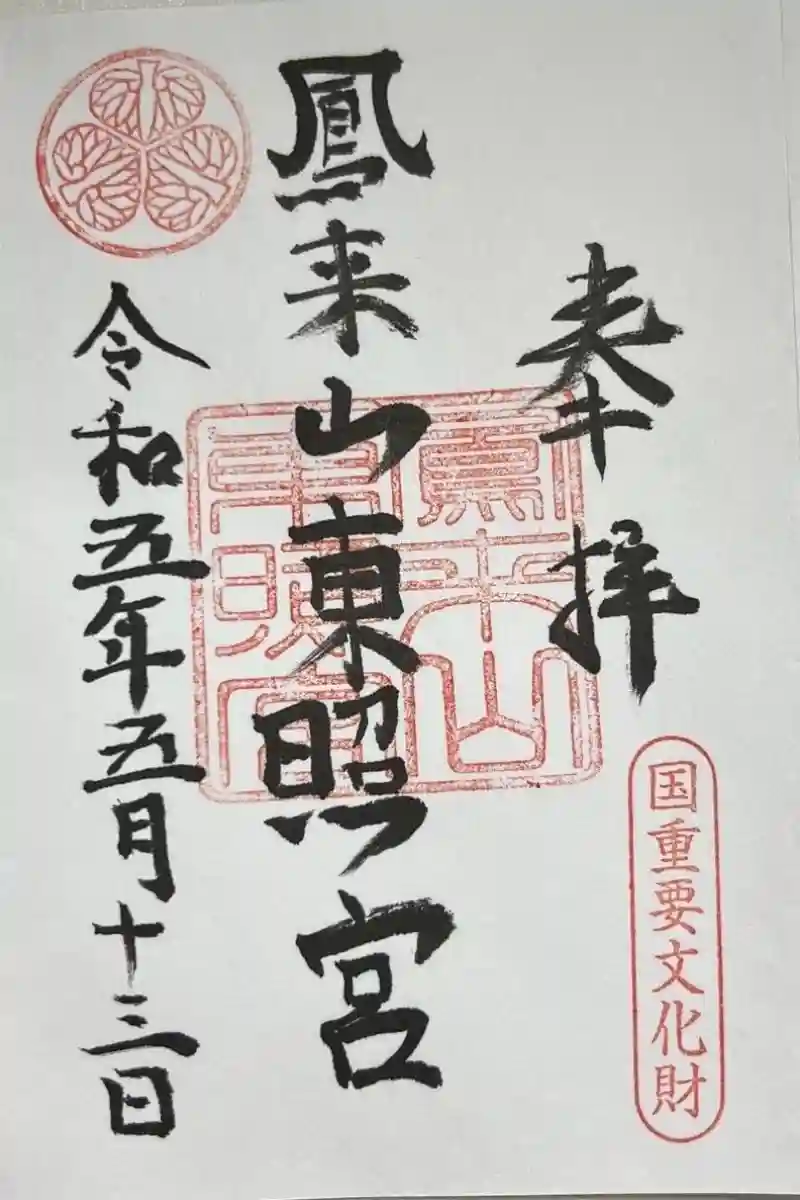 奉拝
国重要文化財
鳳来山東照宮
鳳来山
東照宮
令和五年五月十三日